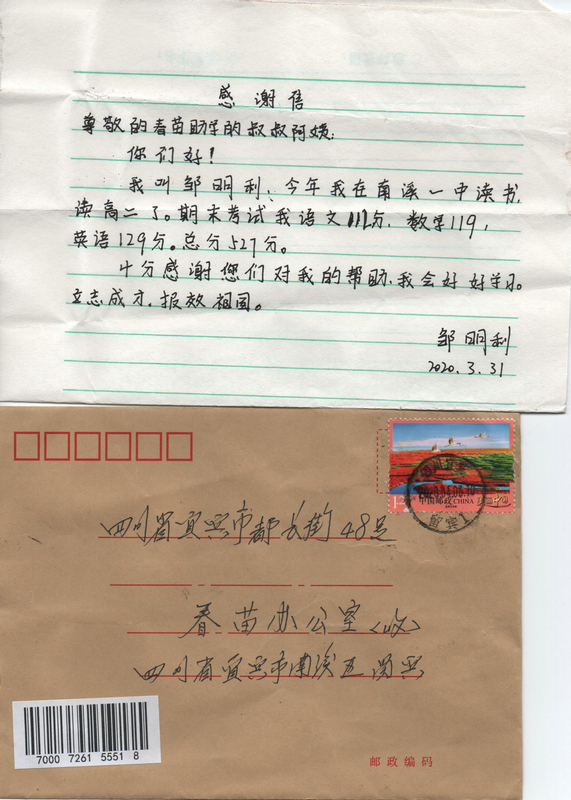 感谢信
尊敬的春苗助学的叔叔阿姨:
你们好!
我叫邹明利,今年我在南溪一中读书,
读高二了。期末考试我语文112分,数学119,
英语129分。总分527分。
十分感谢您们对我的帮助,我会好好学习。
立志成才,报效祖国。
邹明利
2020.3.31
1.20元
中国邮政 CHINA
四川省宜宾市都长街48号
春苗办公室(收)
四川省宜宾市南溪区
7000 7261 5551 8
邮政编码